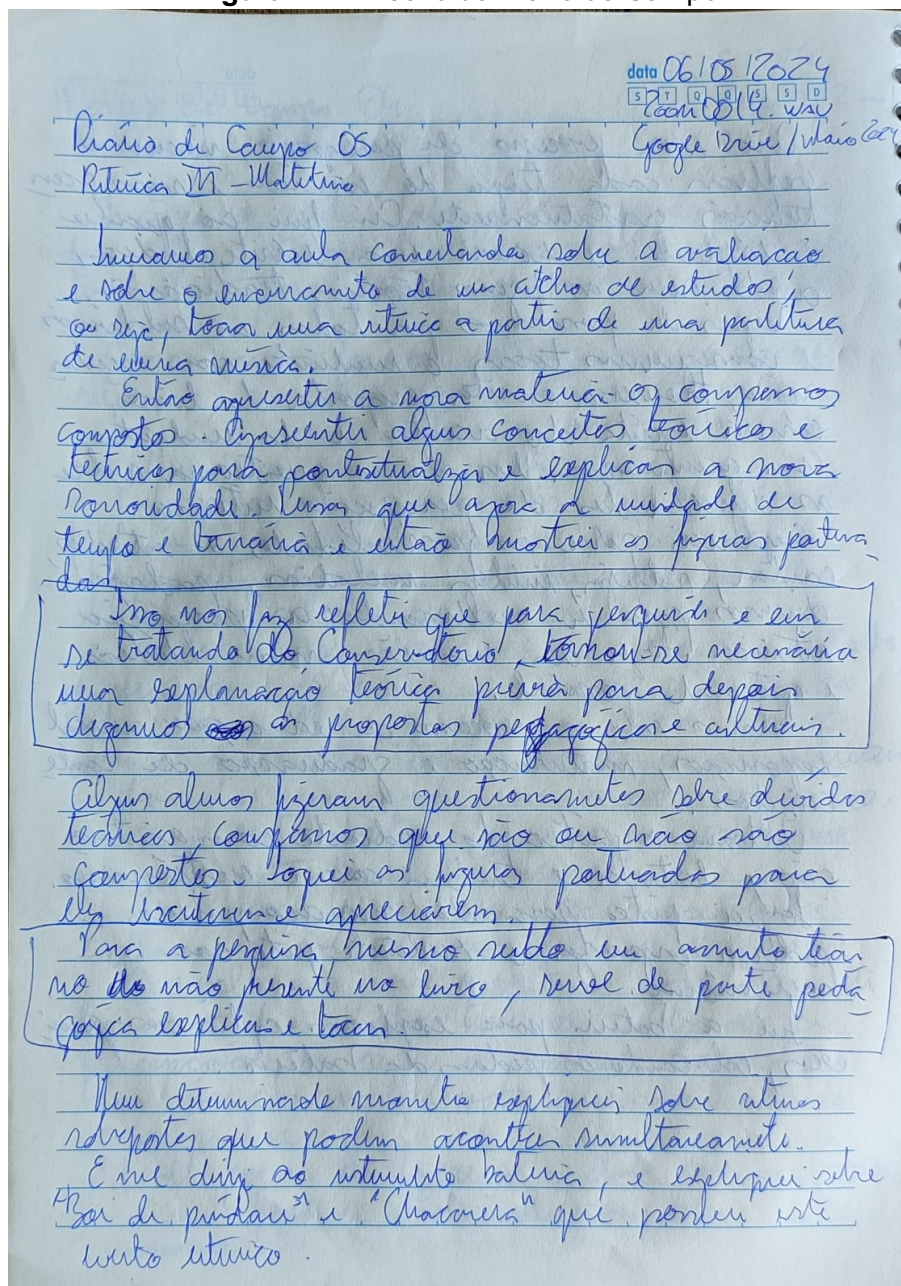 data 06/05/2024
S T Q Q S S D
Zoom0014.wav
Google Drive / Maio 2024
Diário de Campo 05
Rítmica III - Matutino
Iniciamos a aula comentando sobre a avaliação
e sobre o encerramento de um ciclo de estudos,
ou seja, tocar uma rítmica a partir de uma partitura
de uma música.
Então apresentei a nova matéria: os compassos
compostos. Apresentei alguns conceitos teóricos e
técnicos para contextualizar e explicar a nova
sonoridade. que agora a unidade de
tempo e ternária e então mostrei as figuras pontua-
das
Isso nos faz refletir que para pesquisa e em
se tratando do Conservatório, tornou-se necessária
uma explanação teórica prévia para depois
digamos as propostas pedagógicas e culturais.
Alguns alunos fizeram questionamentos sobre dúvidas
técnicas, compassos que são ou não são
compostos. Toquei as figuras pontuadas para
eles escutarem e apreciarem.
Para a pesquisa, mesmo sendo um assunto teóri
no não presente no livro, serve de ponte peda-
gógica explicar e tocar.
Num determinado momento expliquei sobre ritmos
sobrepostos que podem acontecer simultaneamente.
E me dirigi ao instrumento bateria, e expliquei sobre
"Boi de pindaré" e "Chacarera" que possuem este
rítmico.